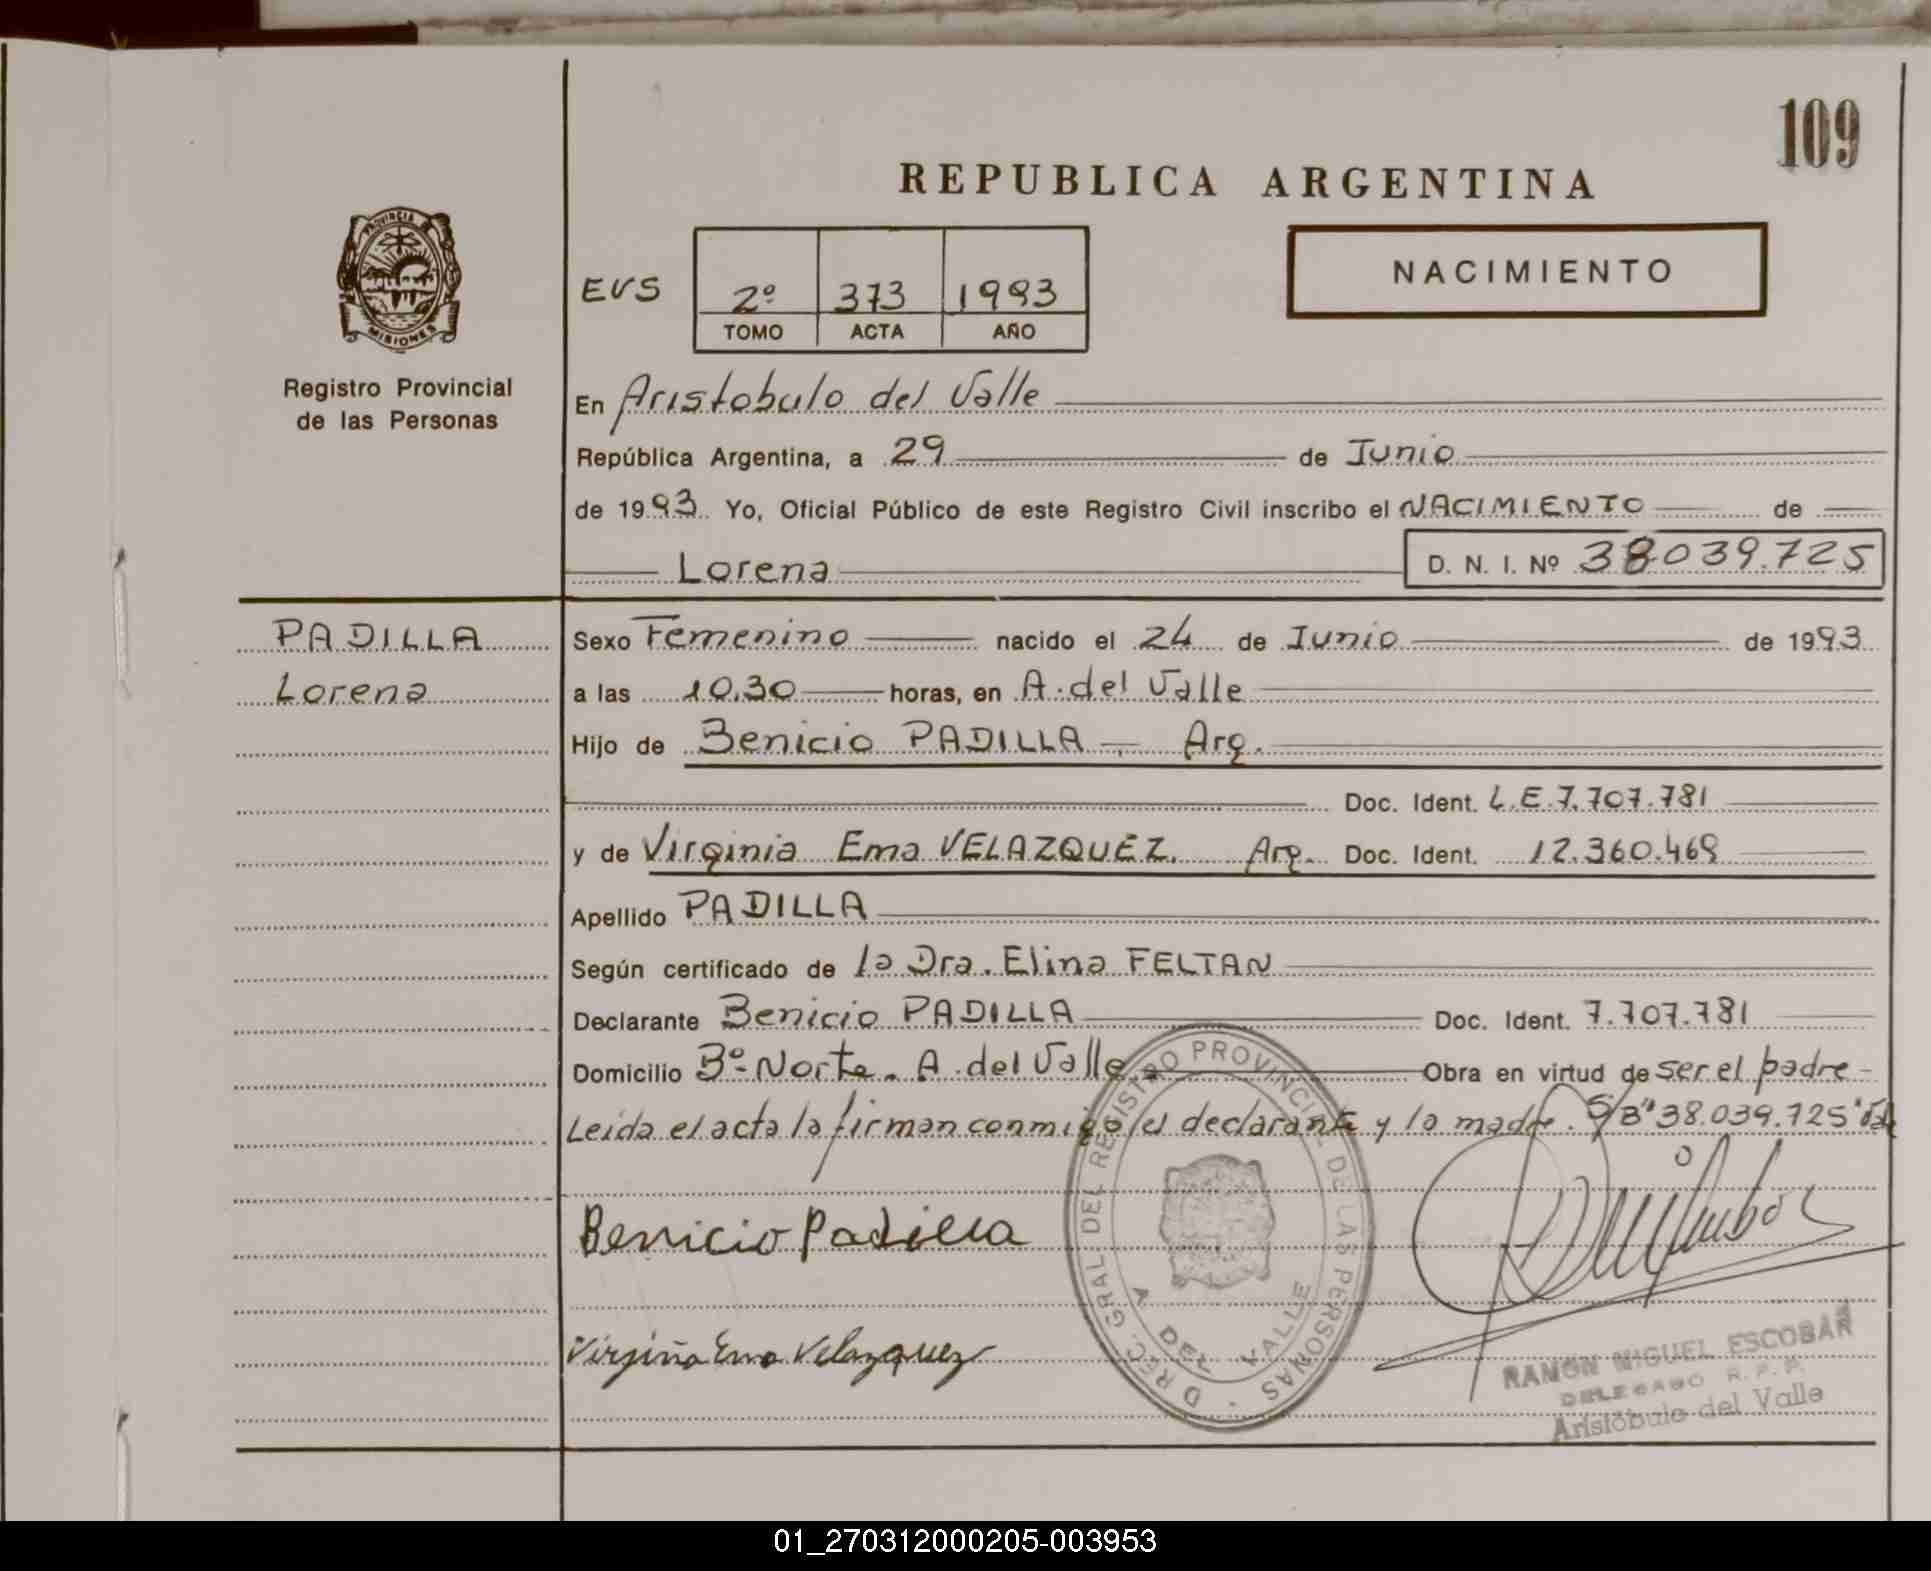 109
REPUBLICA ARGENTINA
PROVINCIA
MISIONES
Registro Provincial
de las Personas
EVS
2º 373 1993
TOMO ACTA AÑO
NACIMIENTO
En Aristobulo del Valle
República Argentina, a 29 de Junio
de 1993 Yo, Oficial Público de este Registro Civil inscribo el NACIMIENTO de
Lorena D. N. I. Nº 38039.725
PADILLA
Lorena
Sexo Femenino nacido el 24 de Junio de 1993
a las 10.30 horas, en A. del Valle
Hijo de Benicio PADILLA - Arg.
Doc. Ident. L.E.7.707.781
y de Virginia Ema VELAZQUEZ. Arg. Doc. Ident. 12.360.469
Apellido PADILLA
Según certificado de la Dra. Elina FELTAN
Declarante Benicio PADILLA Doc. Ident. 7.707.781
Domicilio Bº- Norte. A. del Valle. Obra en virtud de ser el padre -
Leida el acta la firman conmigo el declarante y la madre. S/B "38.039.725" Vale
Benicio Padilla
Virginia Ema Velazquez
DREC. GRAL DEL REGISTRO PROVINCIAL DE LAS PERSONAS
A DEL VALLE
RAMON MIGUEL ESCOBAR
DELEGADO R.P.P.
Aristóbulo del Valle
01_270312000205-003953